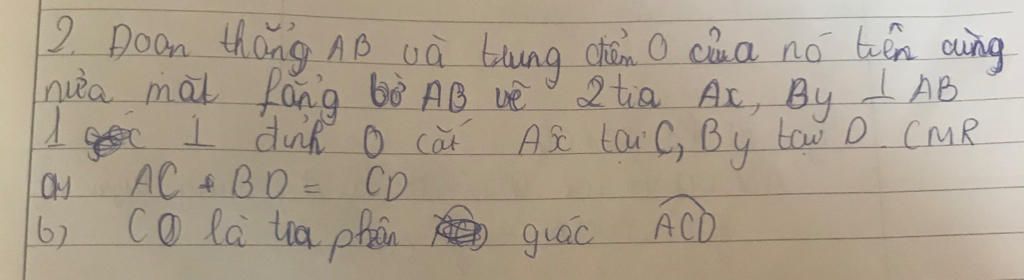 2. Đoạn thẳng AB và trung điểm O của nó trên cùng
nửa mặt fẳng bờ AB vẽ 2 tia Ax, By ⊥ AB
1 góc ⊥ đỉnh O cắt Ax tại C, By tại D. CMR
a) AC + BD = CD
b) CO là tia phân giác ACD